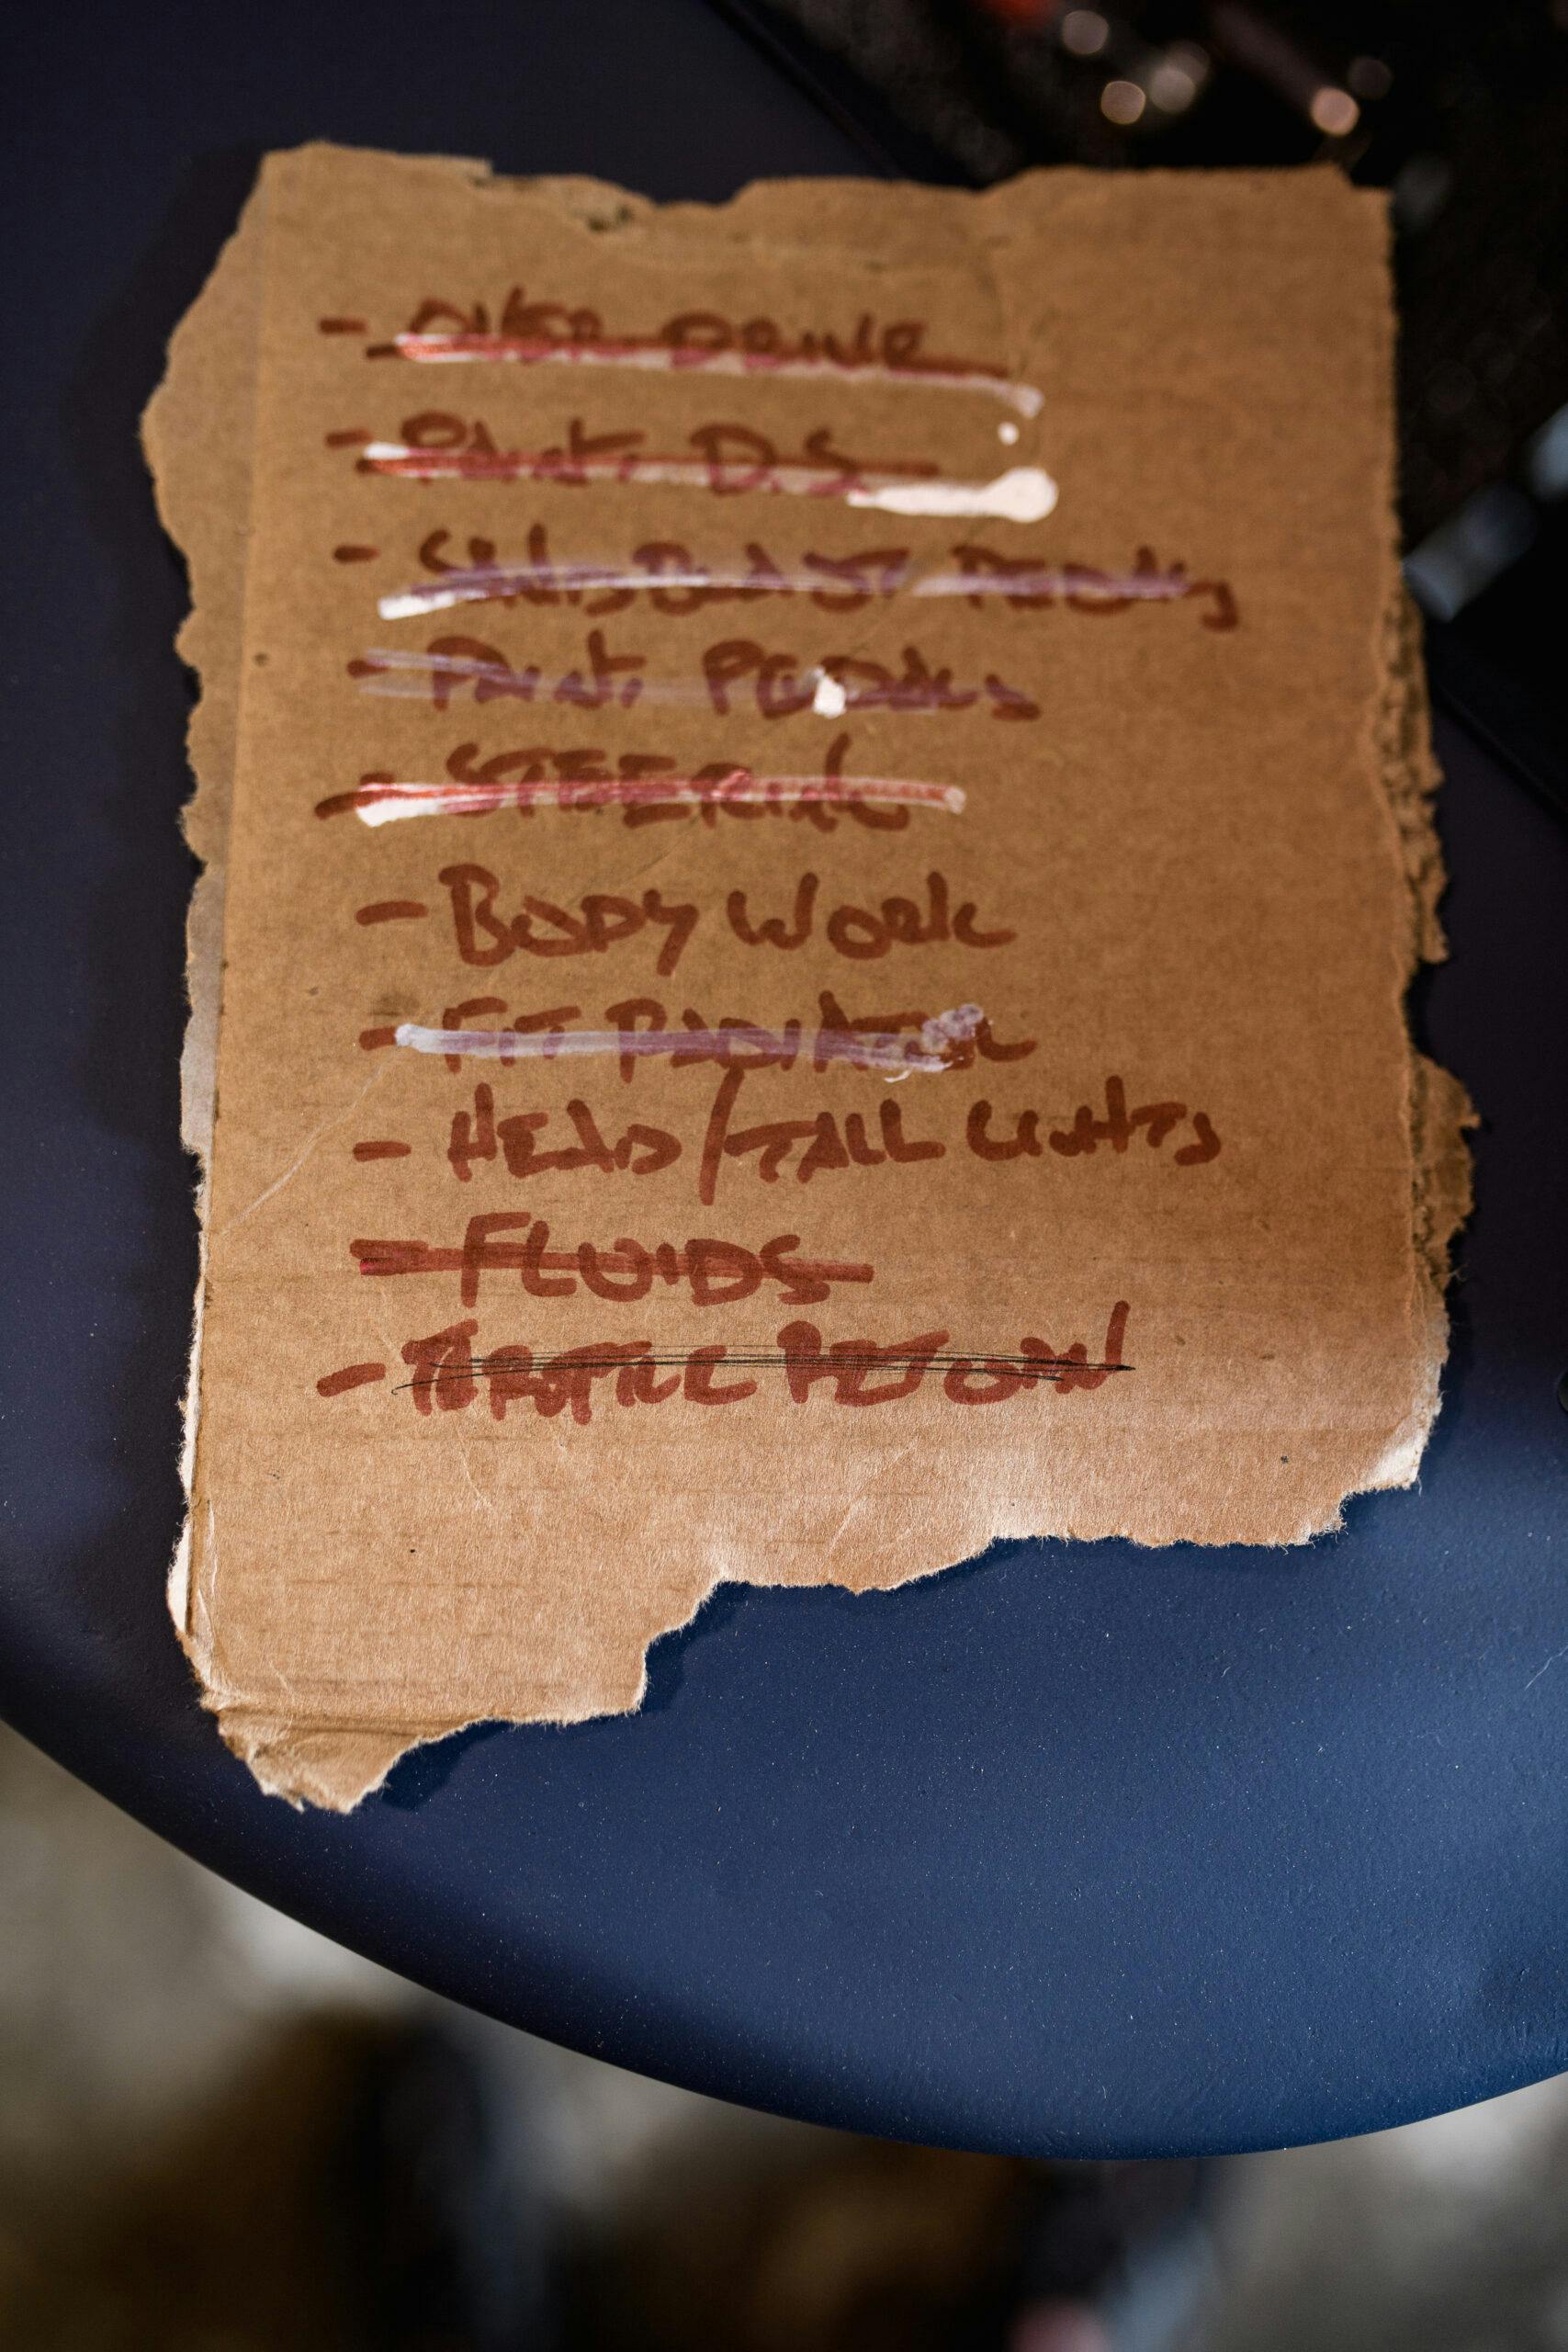 - OVER DRIVE
- PAINT. D.S
- SANDBLAST PEDALS
- PAINT. PEDALS
- STEERING
- BODY WORK
- FIT RADIATOR
- HEAD/TAIL LIGHTS
- FLUIDS
-